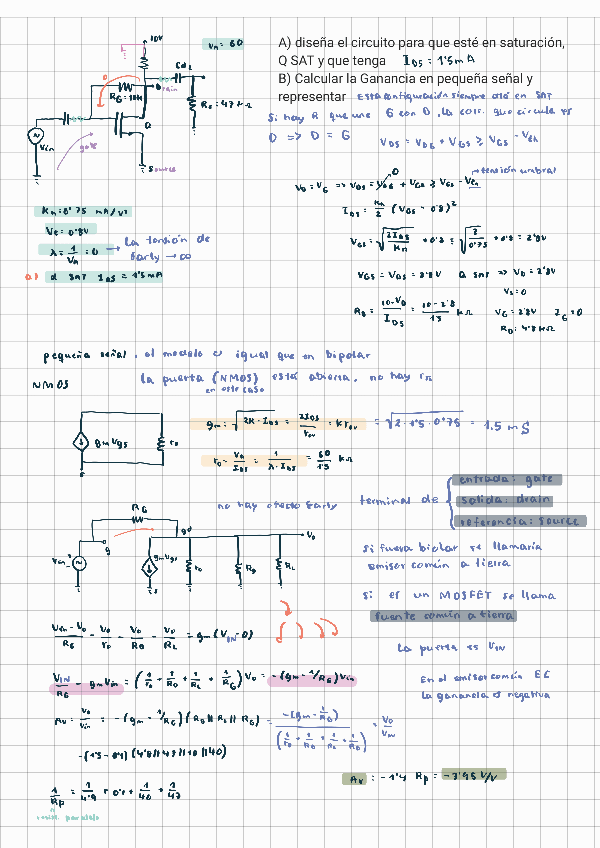 10V
VA = 60
A) diseña el circuito para que esté en saturación,
Q SAT y que tenga IDS = 1'5mA
B) Calcular la Ganancia en pequeña señal y
representar Esta configuración siempre está en SAT
Si hay R que une G con D, la corr. que circula es
0 => D = G
VDS = VDG + VGS ≥ VGS - Vth
RG = 10K
Drain
RL = 47K
Vin
gate
Q
Source
tensión umbral
VD = VG => VDS = VDG + VGS ≥ VGS - Vth
IDS = Kn/2 (VGS - 0'8)²
VGS = √(2IDS/Kn) + 0'8 = √(3/0'75) + 0'8 = 2'8V
VGS = VDS = 2'8V Q SAT => VD = 2'8V
VS = 0
RD = (10-VD)/IDS = (10-2'8)/1'5 KΩ
VG = 2'8V IG = 0
RD = 4'8KΩ
Kn = 0'75 mA/V²
Vt = 0'8V
λ = 1/VA = 0 → La tensión de
Early → ∞
a) Q SAT IDS = 1'5mA
pequeña señal, el modelo es igual que en bipolar
NMOS
la puerta (NMOS) está abierta, no hay rπ
en este caso
gmVgs
ro
gm = √(2K·IDS) = 2IDS/Vov = K Vov = √(2·1'5·0'75) = 1.5 mS
ro = VA/IDS = 1/(λ·IDS) = 60/1'5 KΩ
no hay efecto Early
terminal de
entrada: gate
salida: drain
referencia: source
RG
g
Vin
gmVgs
ro
RD
RL
Vo
si fuera bipolar se llamaría
emisor común a tierra
si es un MOSFET se llama
fuente común a tierra
(Vin - Vo)/RG - Vo/ro - Vo/RD - Vo/RL = gm(VIN - 0)
La puerta es VIN
VIN/RG - gmVin = (1/ro + 1/RD + 1/RL + 1/RG)Vo = -(gm - 1/RG)Vin
En el emisor común EC
la ganancia es negativa
Av = Vo/Vin = -(gm - 1/RG)(RD || RL || RG) = -(gm - 1/RG)/(1/ro + 1/RD + 1/RL + 1/RG) = Vo/VIN
-(1'5 - 0'1)(4'8 || 47 || 10 || 40)
Av = -1'4 Rp = -3'95 V/V
1/Rp = 1/4'8 + 0'1 + 1/40 + 1/47
resist. paralelo